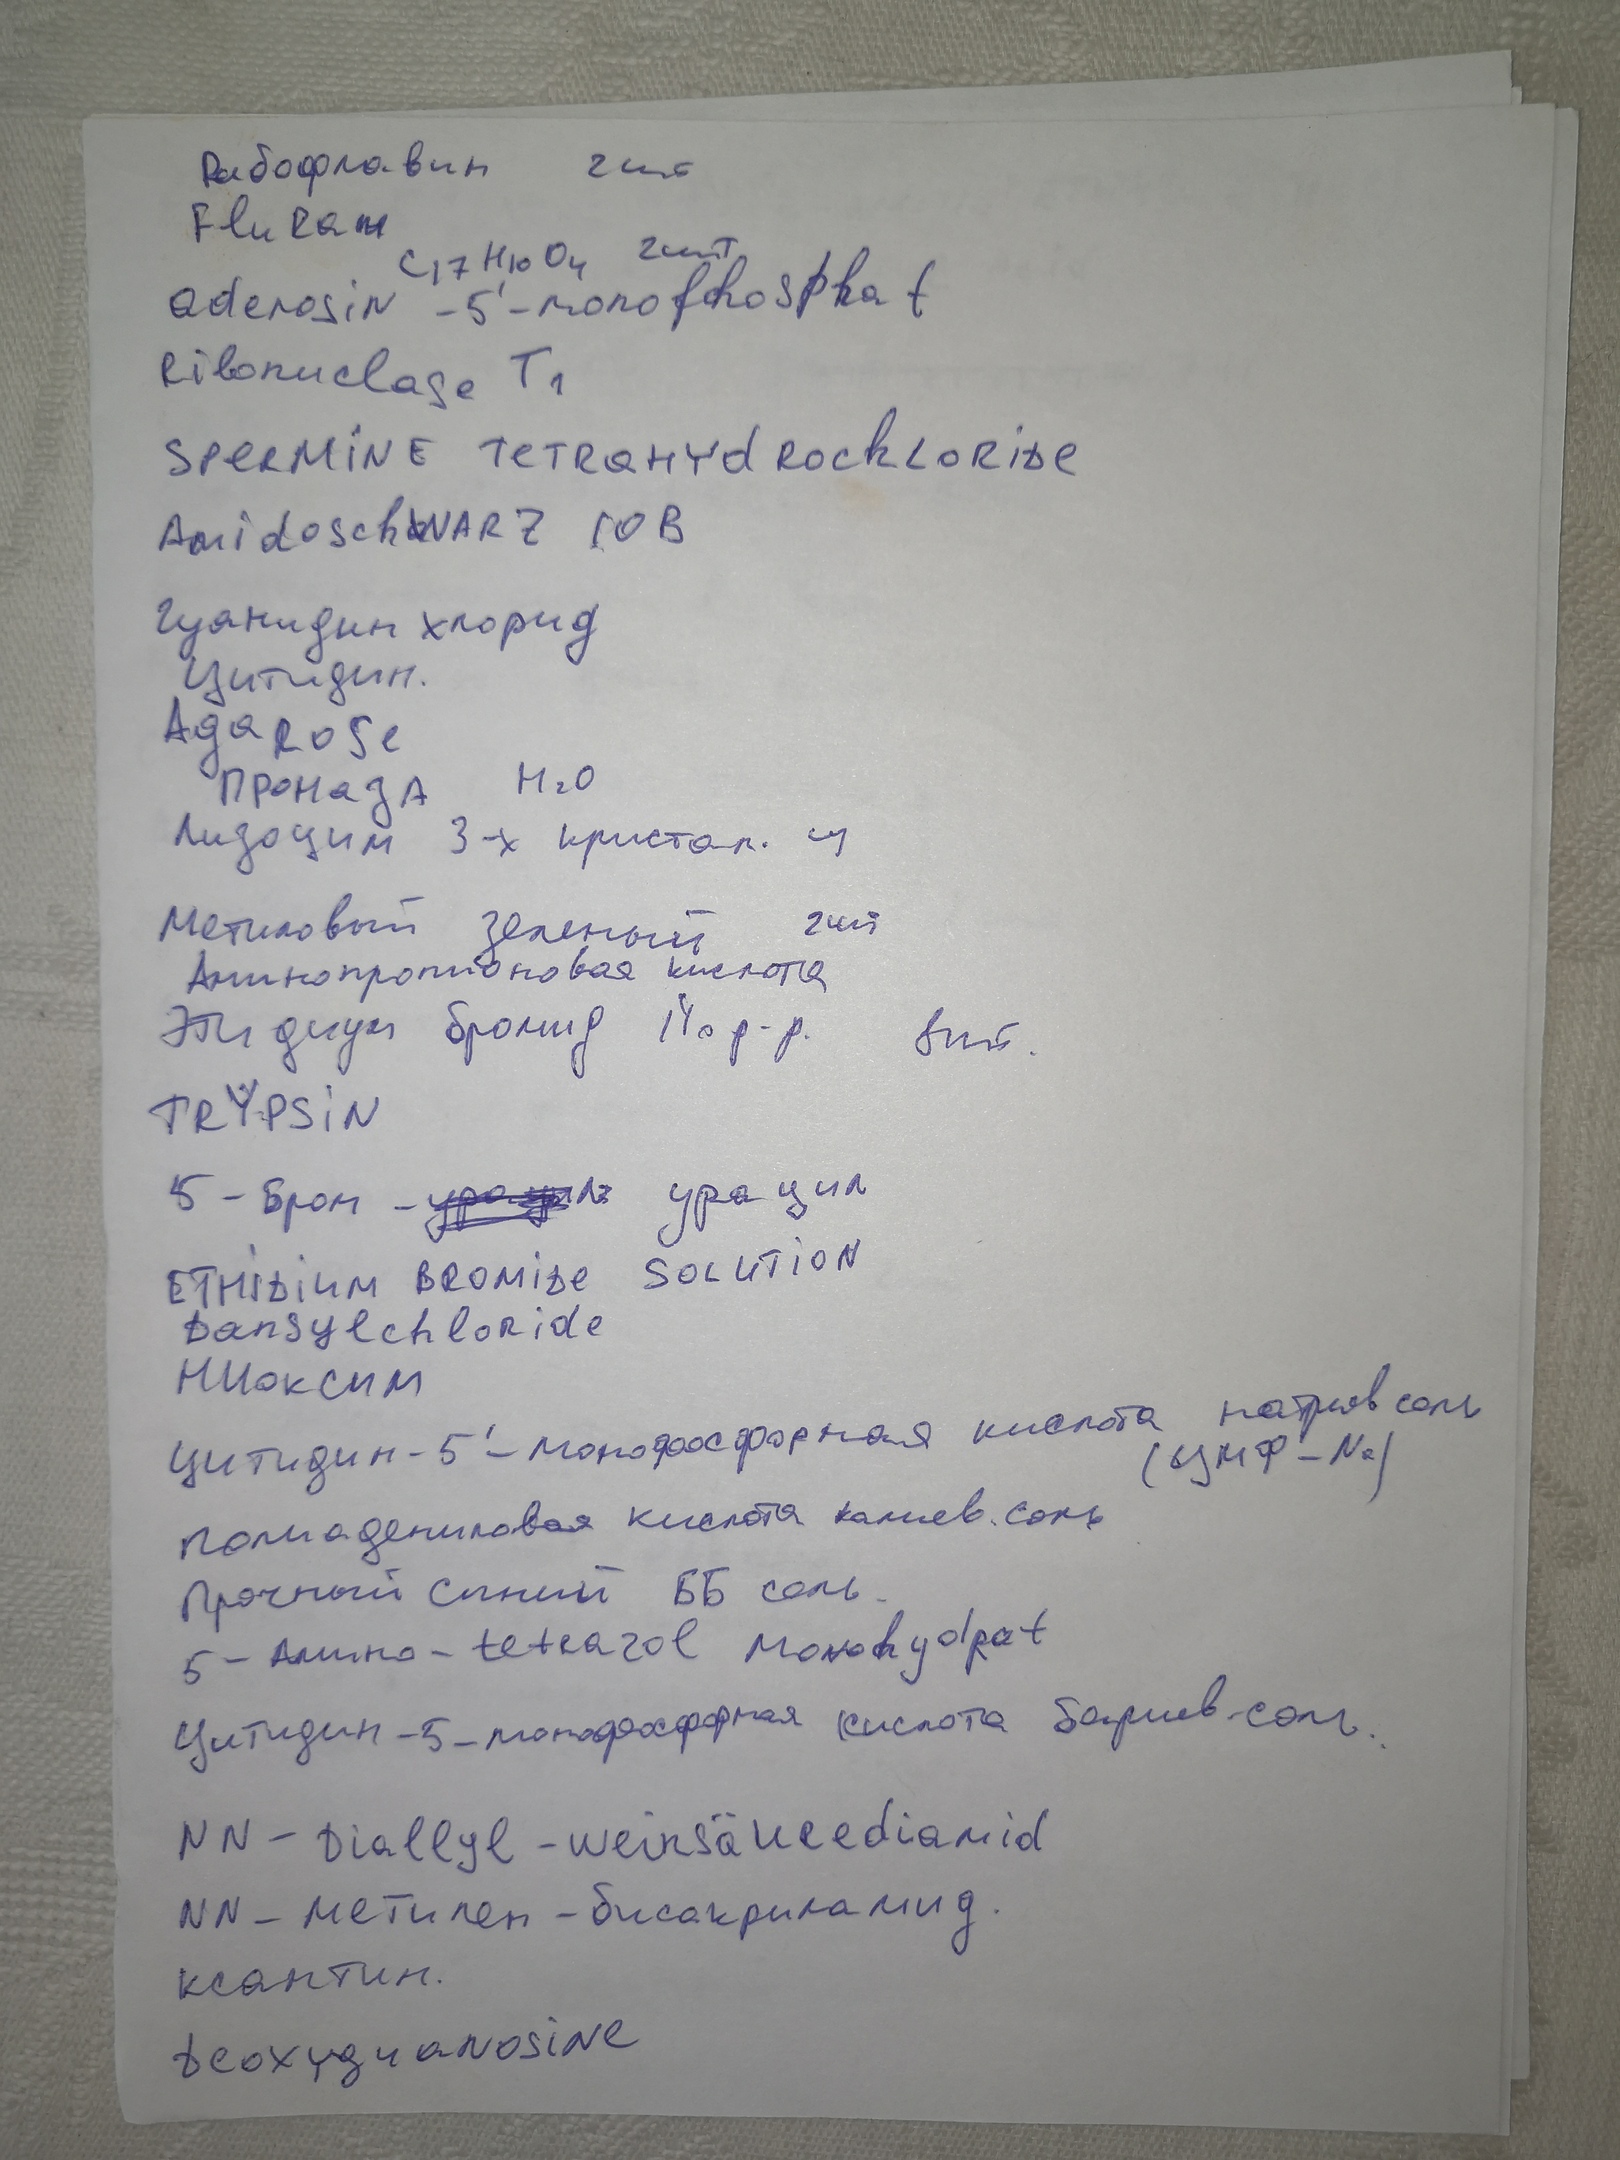 Рибофлавин 2 шт
FluRam
C17 H10 O4 2 шт
Adenosin -5'-monofhosphat
Ribonuclase T1
SPERMINE TETRAHYdROchLORIDe
AmidoschWARZ 10B
Гуанидин хлорид
Цитидин.
AgaRose
ПРОНАЗА H2O
Лизоцим 3-х кристал. ч
Метиловый зеленый 2 шт
Аминопропионовая кислота
Этидиум бромид 1% р-р. 8 шт.
TRYPSIN
5 - Бром - урацил
ETHIDIUM BROMIDe SOLUTION
Dansylchloride
Ниоксим
Цитидин-5'-монофосфорная кислота натриев соль
(ЦМФ-Na)
Полиадениловая кислота калиев. соль
Прочный синий ББ соль.
5 - Амино - tetrazol Monohydrat
Цитидин -5- монофосфорная кислота бариев. соль.
NN - Diallyl - weinsäureediamid
NN - Метилен - бисакриламид.
Ксантин.
Deoxyguanosine